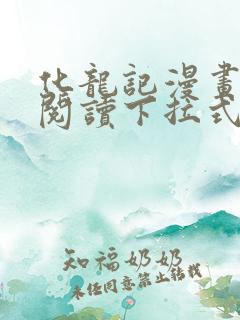 化龍記漫畫
閱讀下拉式
知福奶奶
未经同意禁止转载